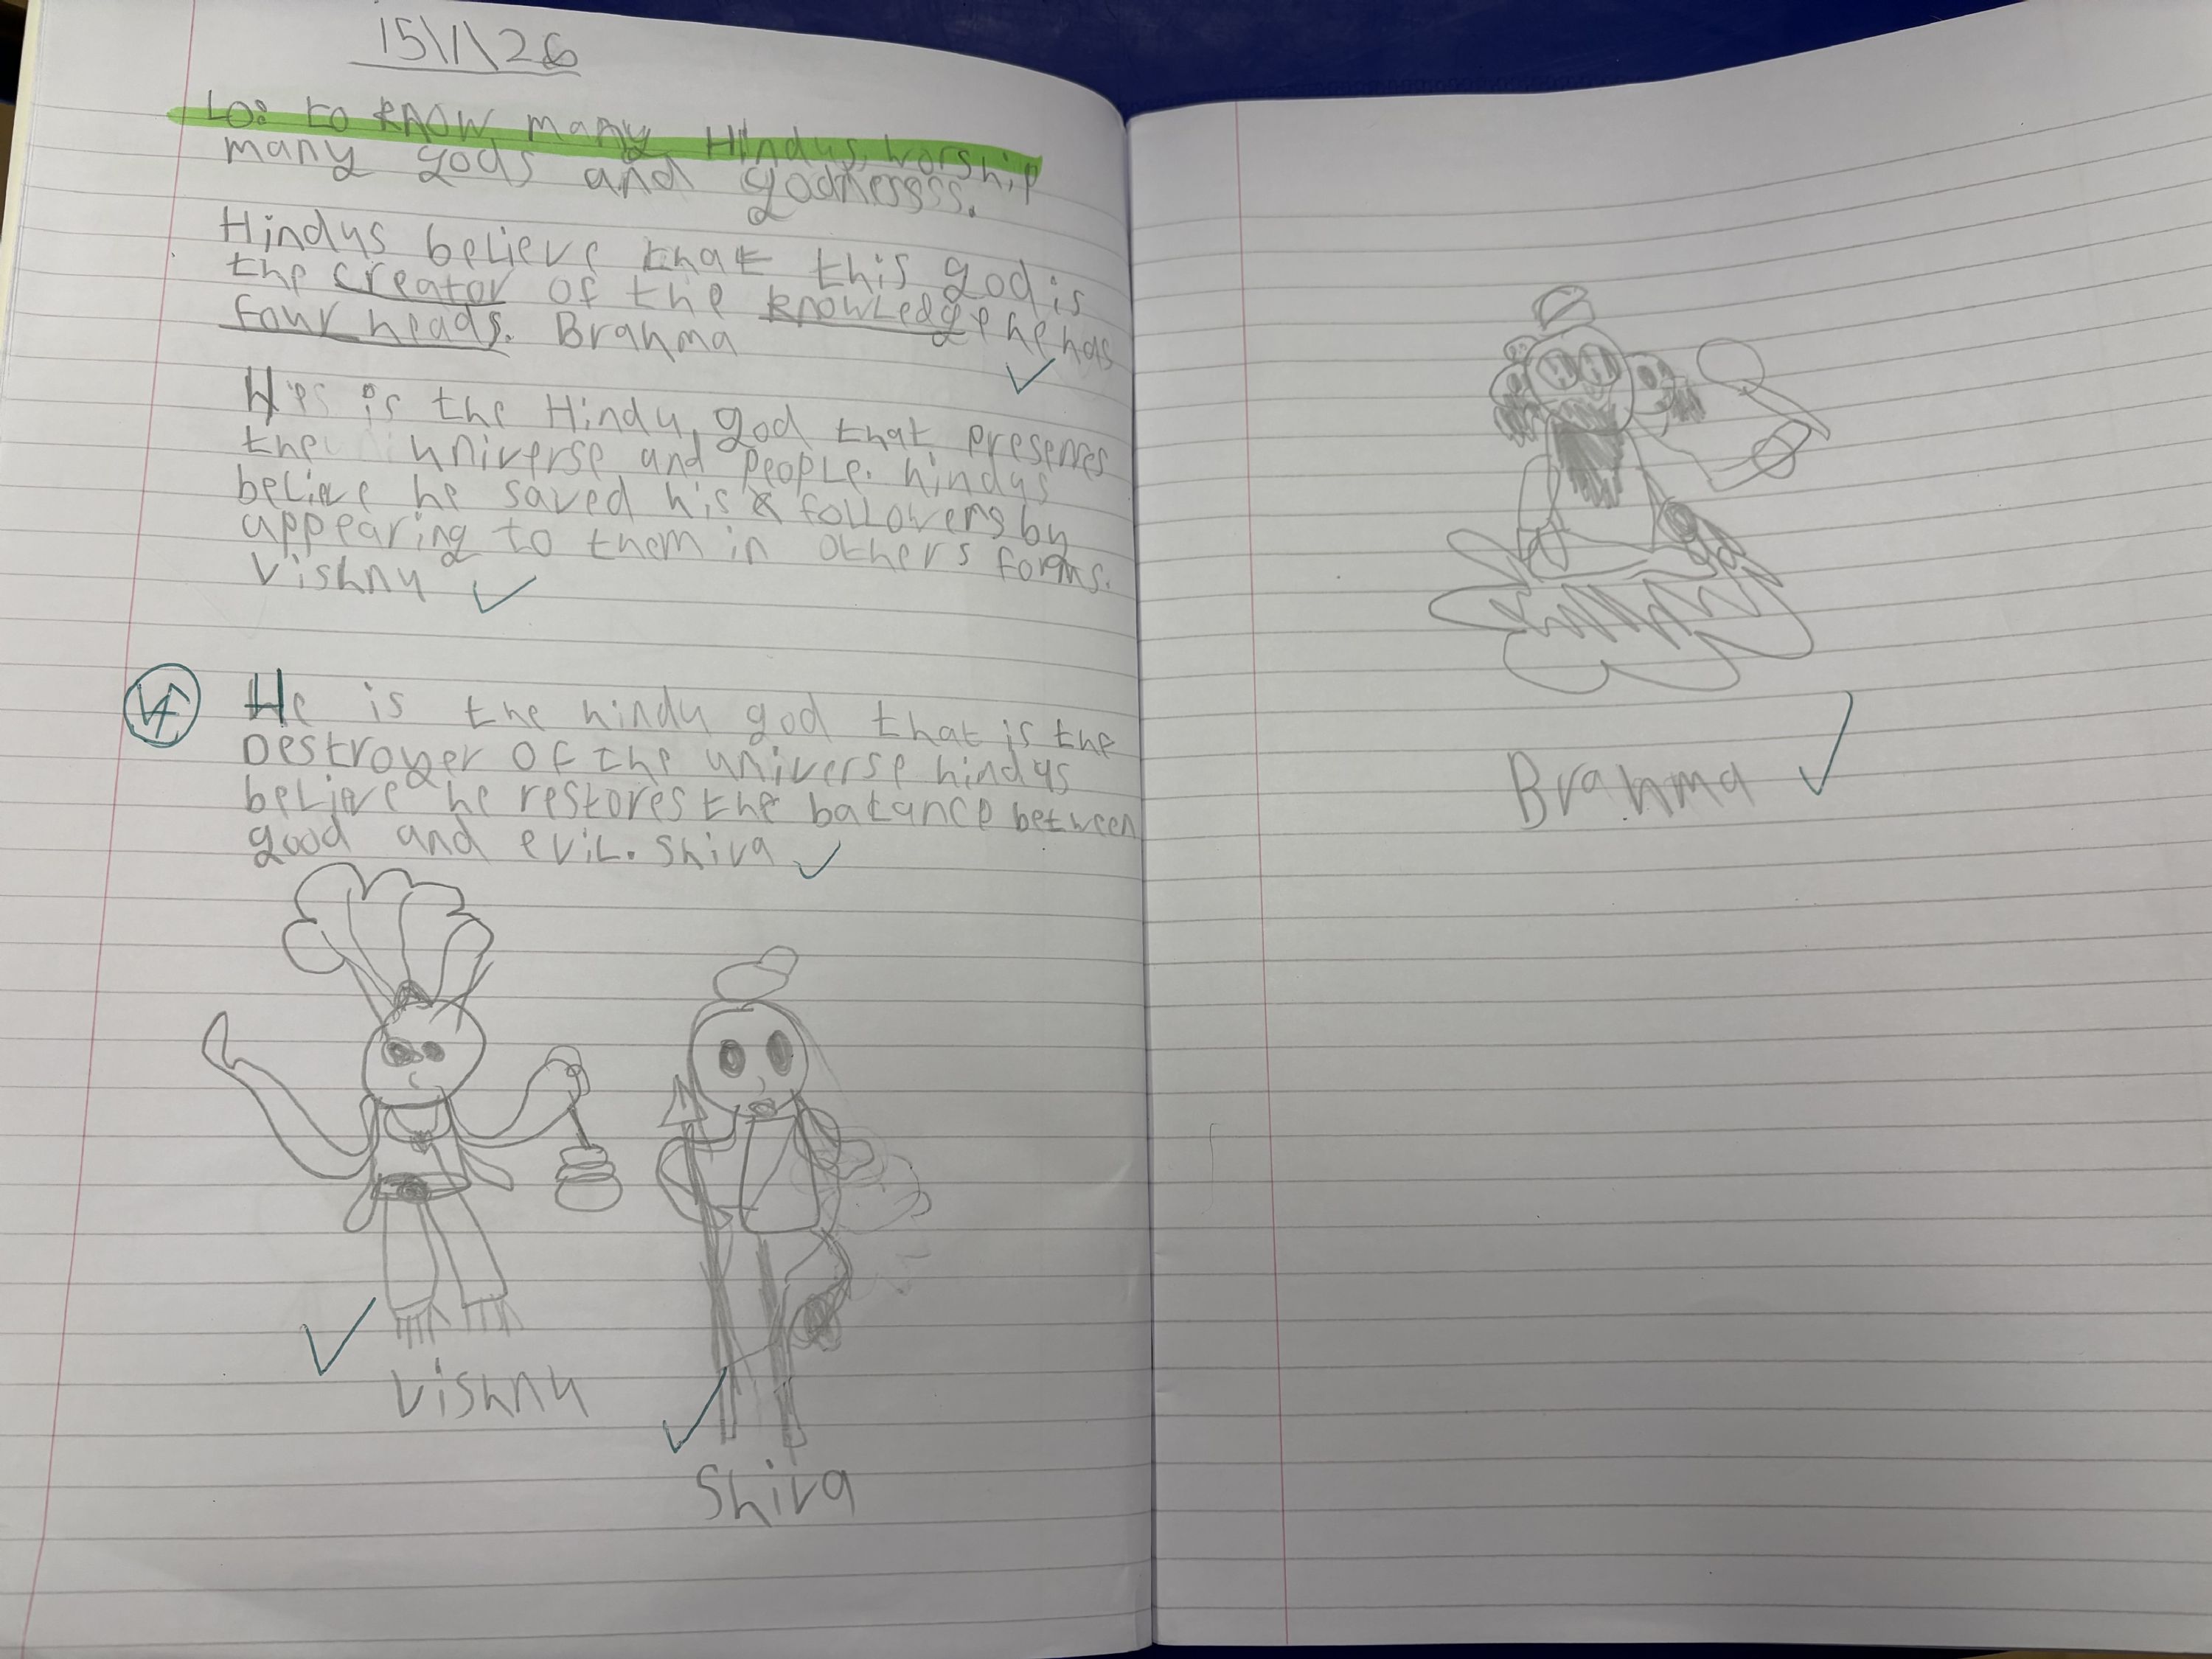 15\1\26
LO: to know many Hindus worship
many gods and godnesss.
Hindus believe that this god is
the creator of the knowledge he has
four heads. Brahma
is the Hindu god that preserves
the universe and people. hindus
believe he saved his followers by
appearing to them in others forms.
Vishnu
VF
He is the hindu god that is the
Destroyer of the universe hindus
believe he restores the balance between
good and evil. Shiva
Vishnu
Shiva
Brahma